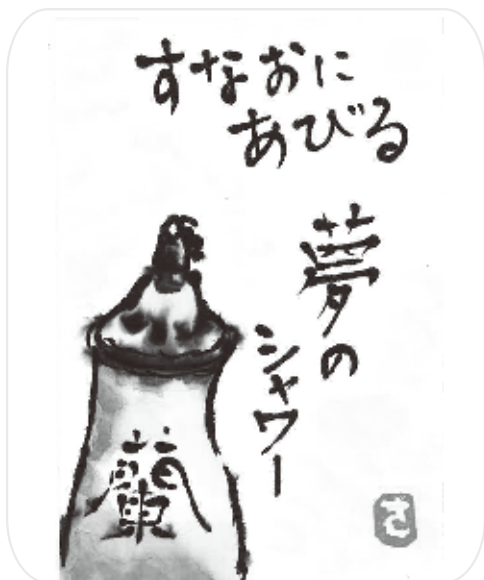 すなおに
あびる
夢の
シャワー
蘭
さ